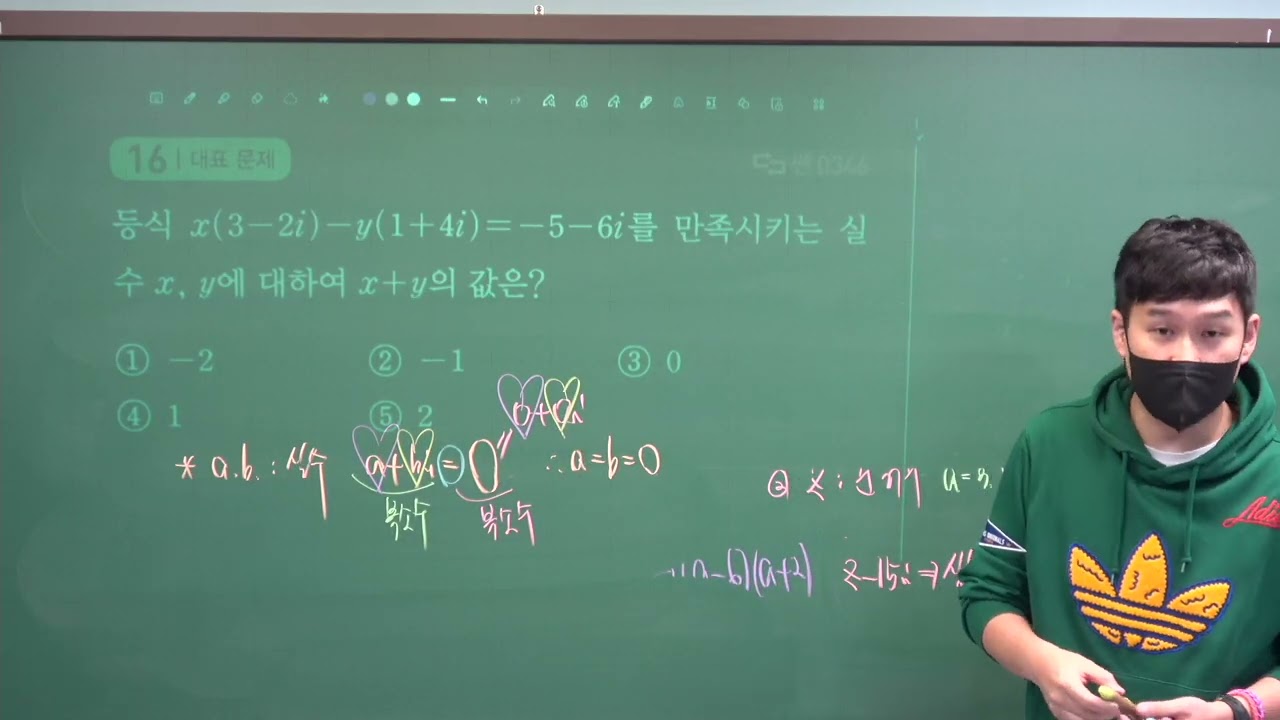 16 | 대표 문제
쎈 0346
등식 x(3-2i)-y(1+4i)=-5-6i를 만족시키는 실
수 x, y에 대하여 x+y의 값은?
① -2 ② -1 ③ 0
④ 1 ⑤ 2
0+0i
* a.b. : 실수 a+bi = 0 ∴ a=b=0
복소수 복소수
② z :
a=3.
-b)(a+2) z-15i ⇒ 실